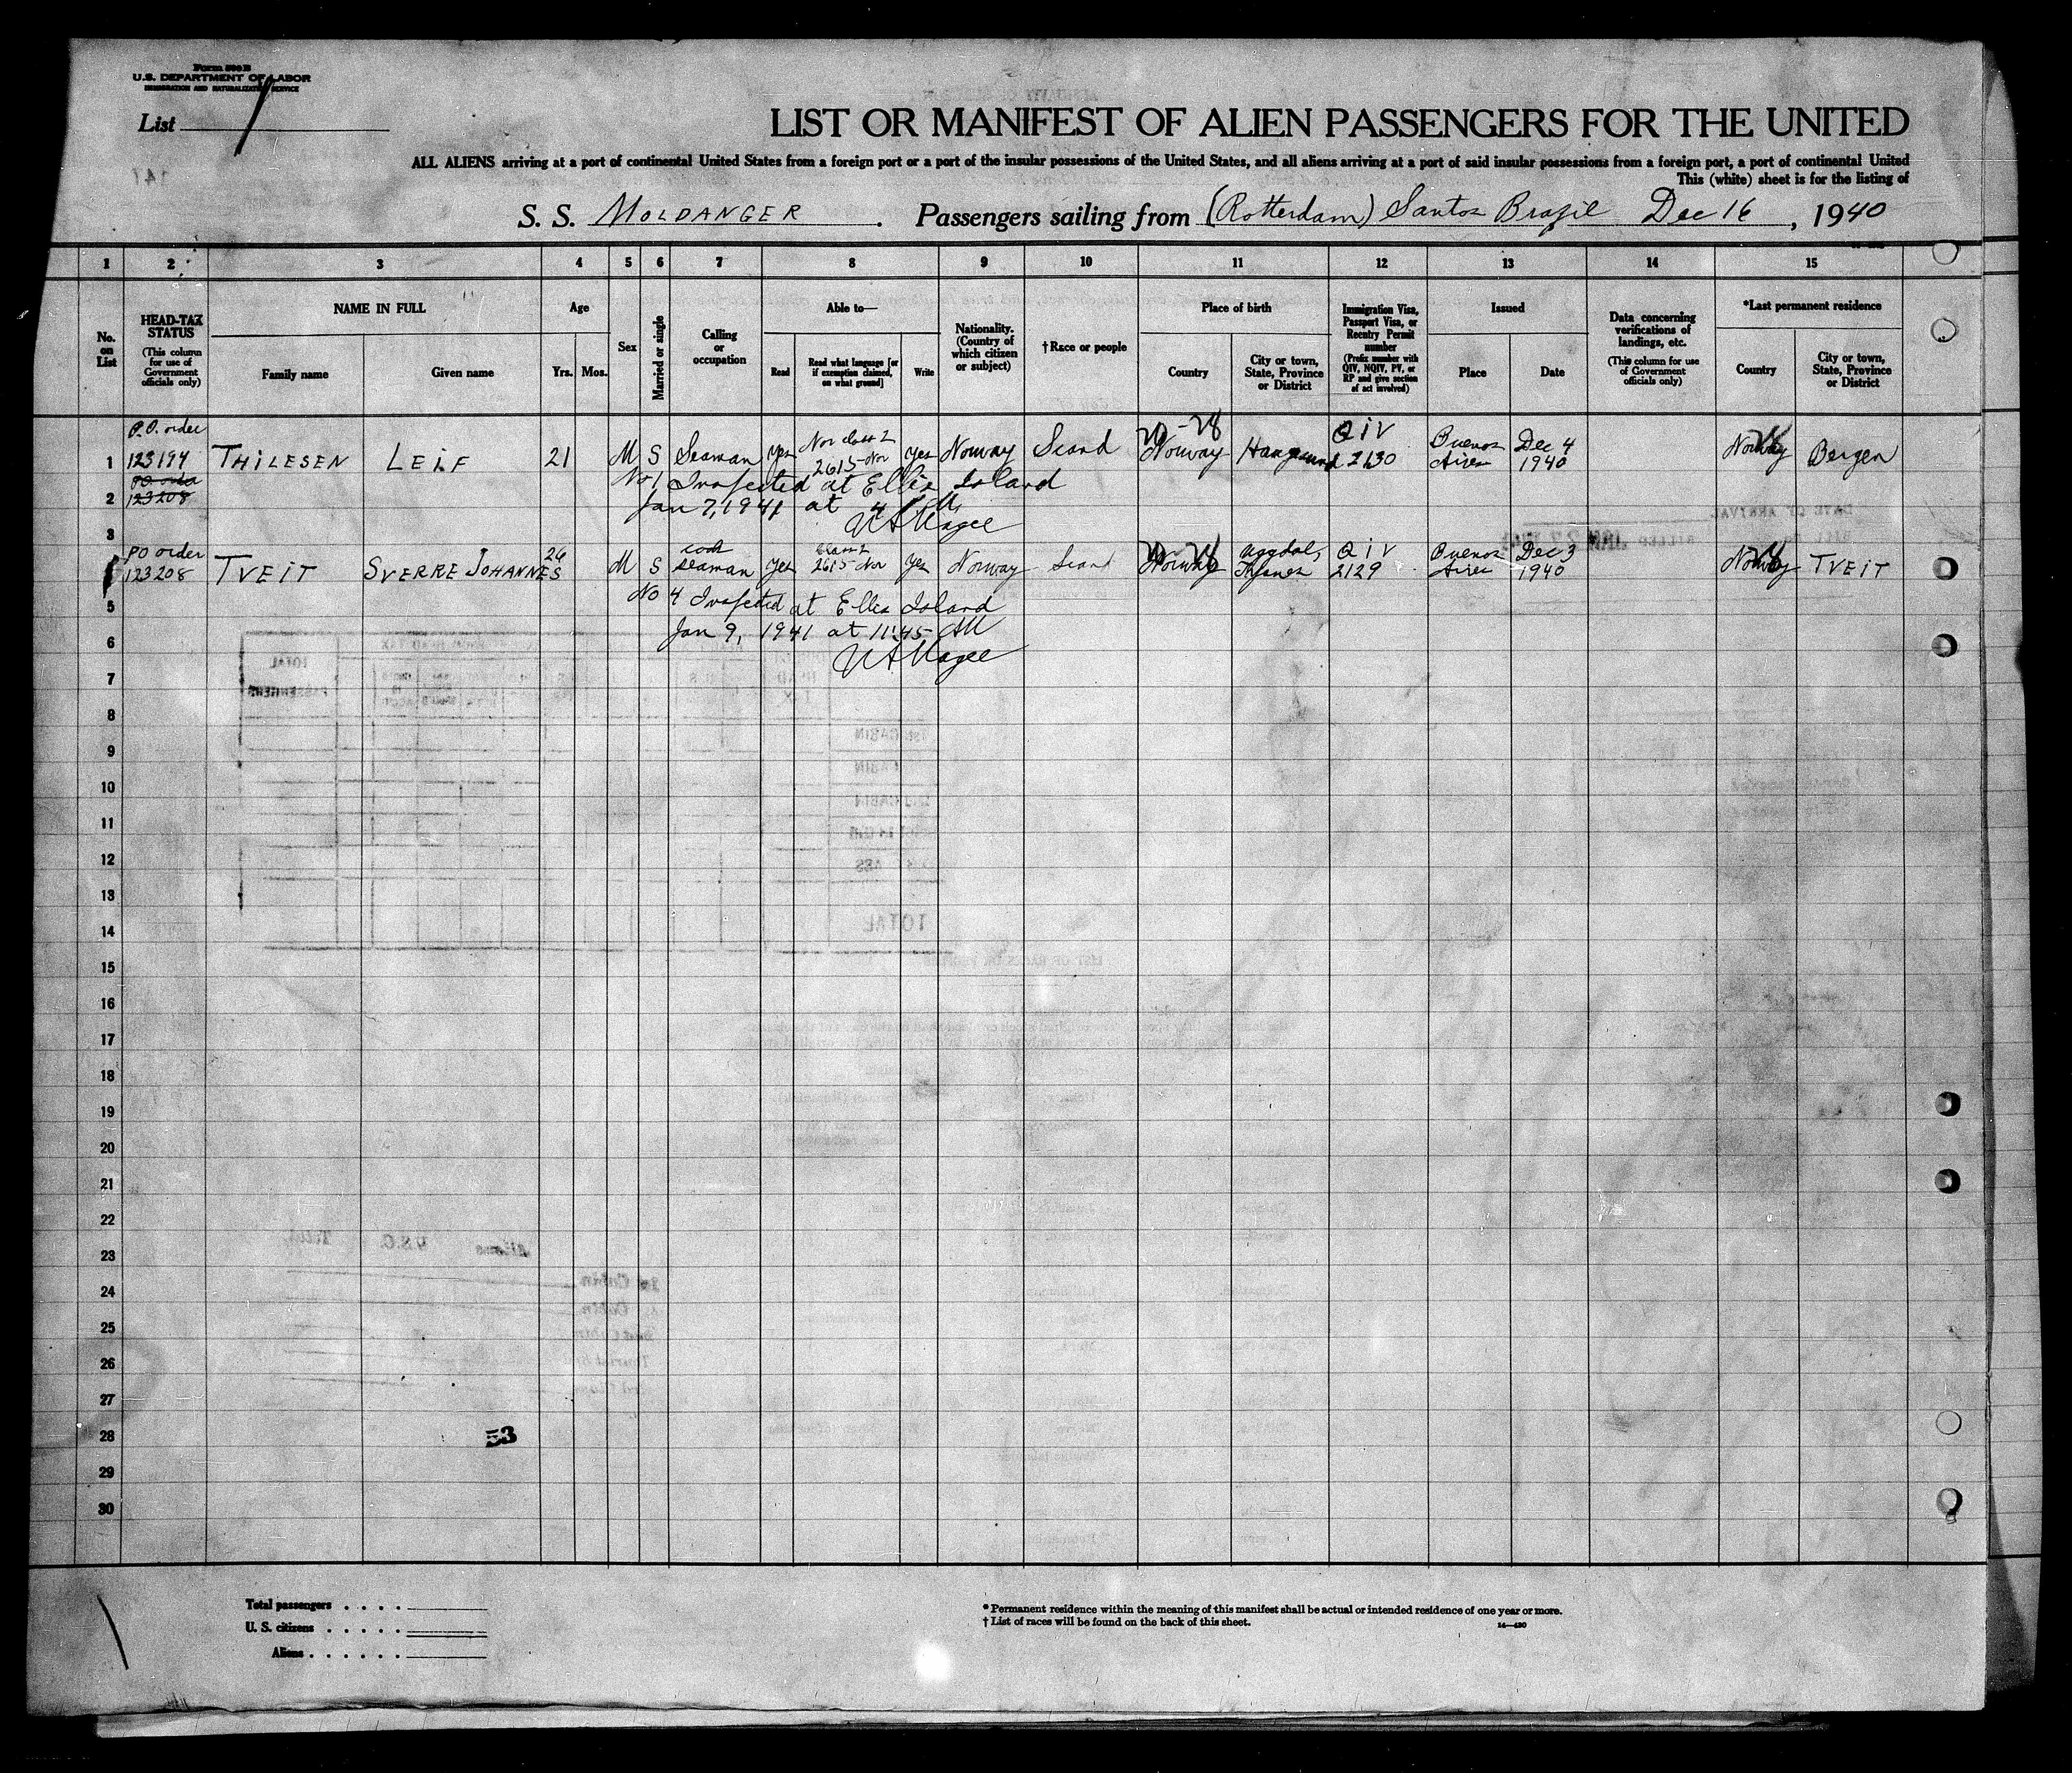 Form 500 B
U.S. DEPARTMENT OF LABOR
IMMIGRATION AND NATURALIZATION SERVICE
List
LIST OR MANIFEST OF ALIEN PASSENGERS FOR THE UNITED
ALL ALIENS arriving at a port of continental United States from a foreign port or a port of the insular possessions of the United States, and all aliens arriving at a port of said insular possessions from a foreign port, a port of continental United
This (white) sheet is for the listing of
S. S. MOLDANGER. Passengers sailing from (Rotterdam) Santos Brazil Dec 16, 1940
1 2 3 4 5 6 7 8 9 10 11 12 13 14 15
No. on List
HEAD-TAX STATUS
(This column for use of Government officials only)
NAME IN FULL
Family name
Given name
Age
Yrs. Mos.
Sex
Married or single
Calling or occupation
Able to—
Read
Read what language [or if exemption claimed, on what ground]
Write
Nationality. (Country of which citizen or subject)
†Race or people
Place of birth
Country
City or town, State, Province or District
Immigration Visa, Passport Visa, or Reentry Permit number
(Prefix number with QIV, NQIV, PV, or RP and give section of act involved)
Issued
Place
Date
Data concerning verifications of landings, etc.
(This column for use of Government officials only)
*Last permanent residence
Country
City or town, State, Province or District
P.O. order
1 123194 THILESEN LEIF 21 M S Seaman yes Nor class 2 2615-Nor yes Norway Scand Norway Haugesund QIV 2130 Buenos Aires Dec 4 1940 Norway Bergen
PO order
No 1 Inspected at Ellis Island
2 123208
Jan 7, 1941 at 4 PM
3
PO order
123208 TVEIT SVERRE JOHANNES 26 M S cook seaman yes class 2 2615-Nor yes Norway Scand Norway QIV 2129 Buenos Aires Dec 3 1940 Norway TVEIT
No 4 Inspected at Ellis Island
5
Jan 9, 1941 at 11:45 AM
6
7
8
9
10
11
12
13
14
15
16
17
18
19
20
21
22
23
24
25
26
27
28
53
29
30
Total passengers . . . .
U. S. citizens . . . . .
Aliens . . . . . .
* Permanent residence within the meaning of this manifest shall be actual or intended residence of one year or more.
† List of races will be found on the back of this sheet.
14—430